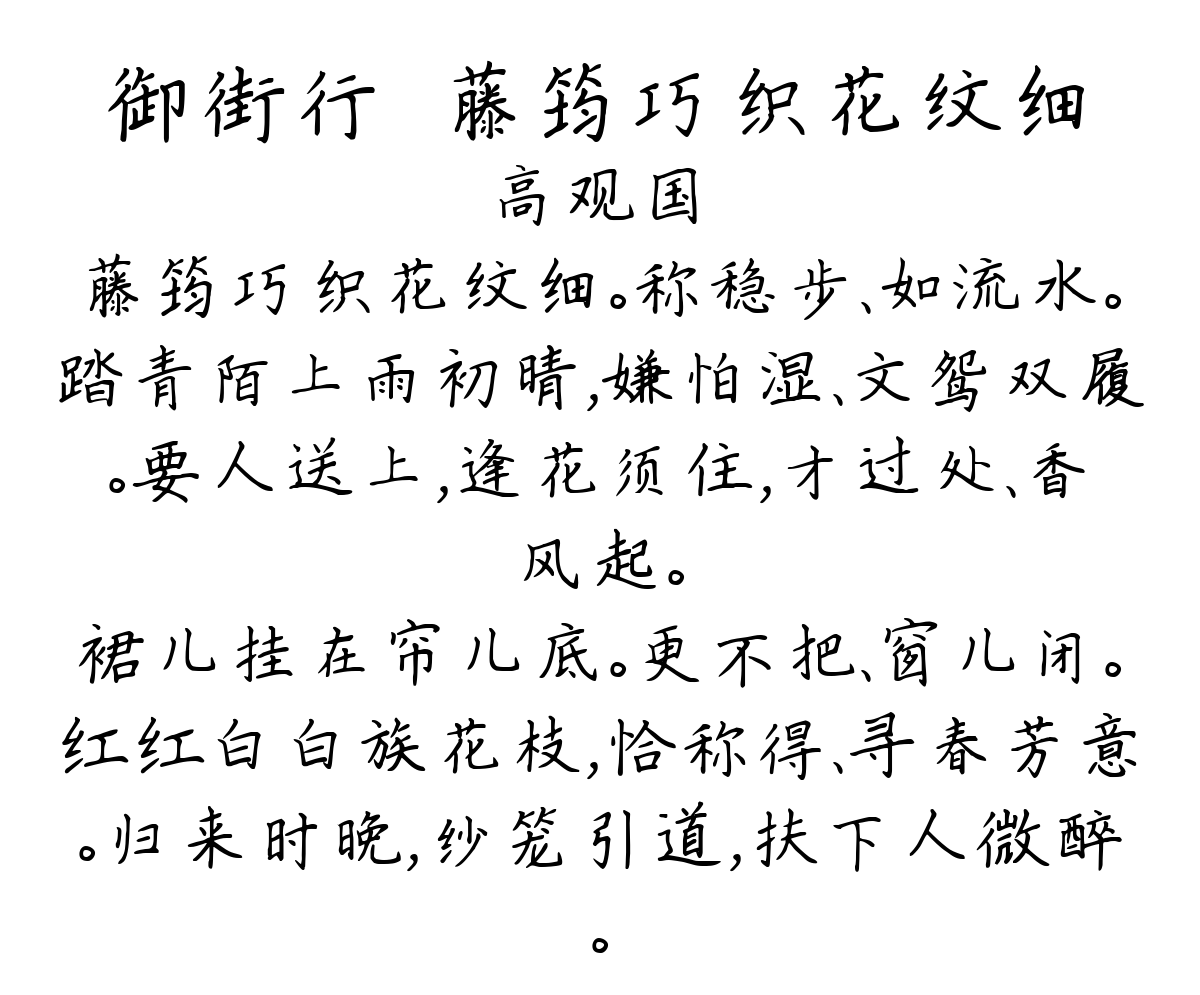 御街行 藤筠巧织花纹细
高观国
藤筠巧织花纹细。称稳步、如流水。
踏青陌上雨初晴,嫌怕湿、文鸳双履
。要人送上,逢花须住,才过处、香
风起。
裙儿挂在帘儿底。更不把、窗儿闭。
红红白白族花枝,恰称得、寻春芳意
。归来时晚,纱笼引道,扶下人微醉
。